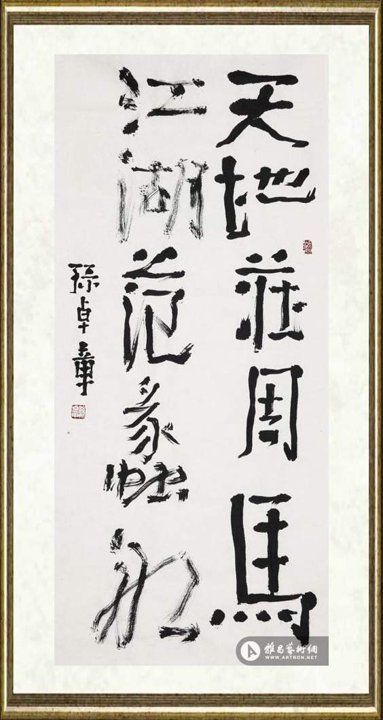 天地莊周馬
江湖范蠡船
孫卓章
雅昌藝術網
WWW.ARTRON.NET